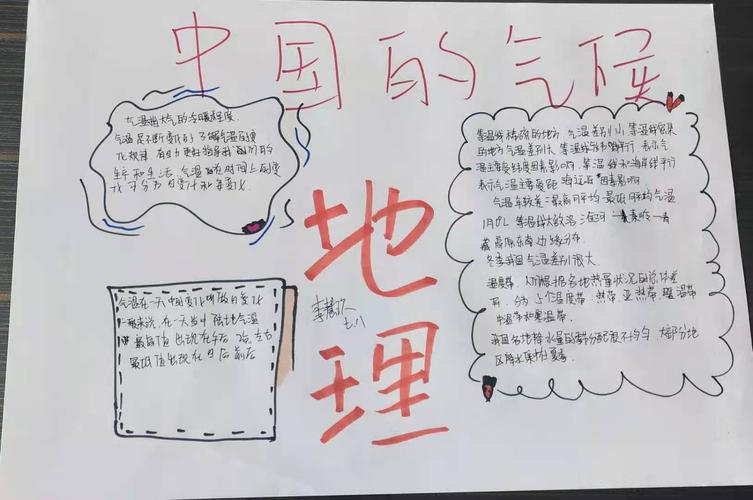 中国的气候
气温指大气的冷暖程度
气温是不断变化的 了解气温的变
化规律,有助
生产和生活 气温在时间上的变
化可分为日变化和年变化
气温在一天中的变化叫做日变化
一般来说,在一天当中 陆地气温
最高值 出现在午后2时左右
最低值出现在日出前后
地
理
七八
等温线稀疏的地方 气温差别小,等温线密集
的地方气温差别大 等温线与纬线平行 表示气
温主要受纬度因素影响 等温线和海岸线平行
表示气温主要受距海远近因素影响
气温年较差=最高月平均 最低月平均气温
1月0℃等温线大致沿淮河一秦岭一青
藏高原东南边缘分布
冬季我国气温差别很大
温度带 根据各地热量状况的总体差
异,分为5个温度带:热带 亚热带 暖温带
中温带和寒温带
我国各地降水量的季节分配很不均匀 大部分地
区降水集中在夏季